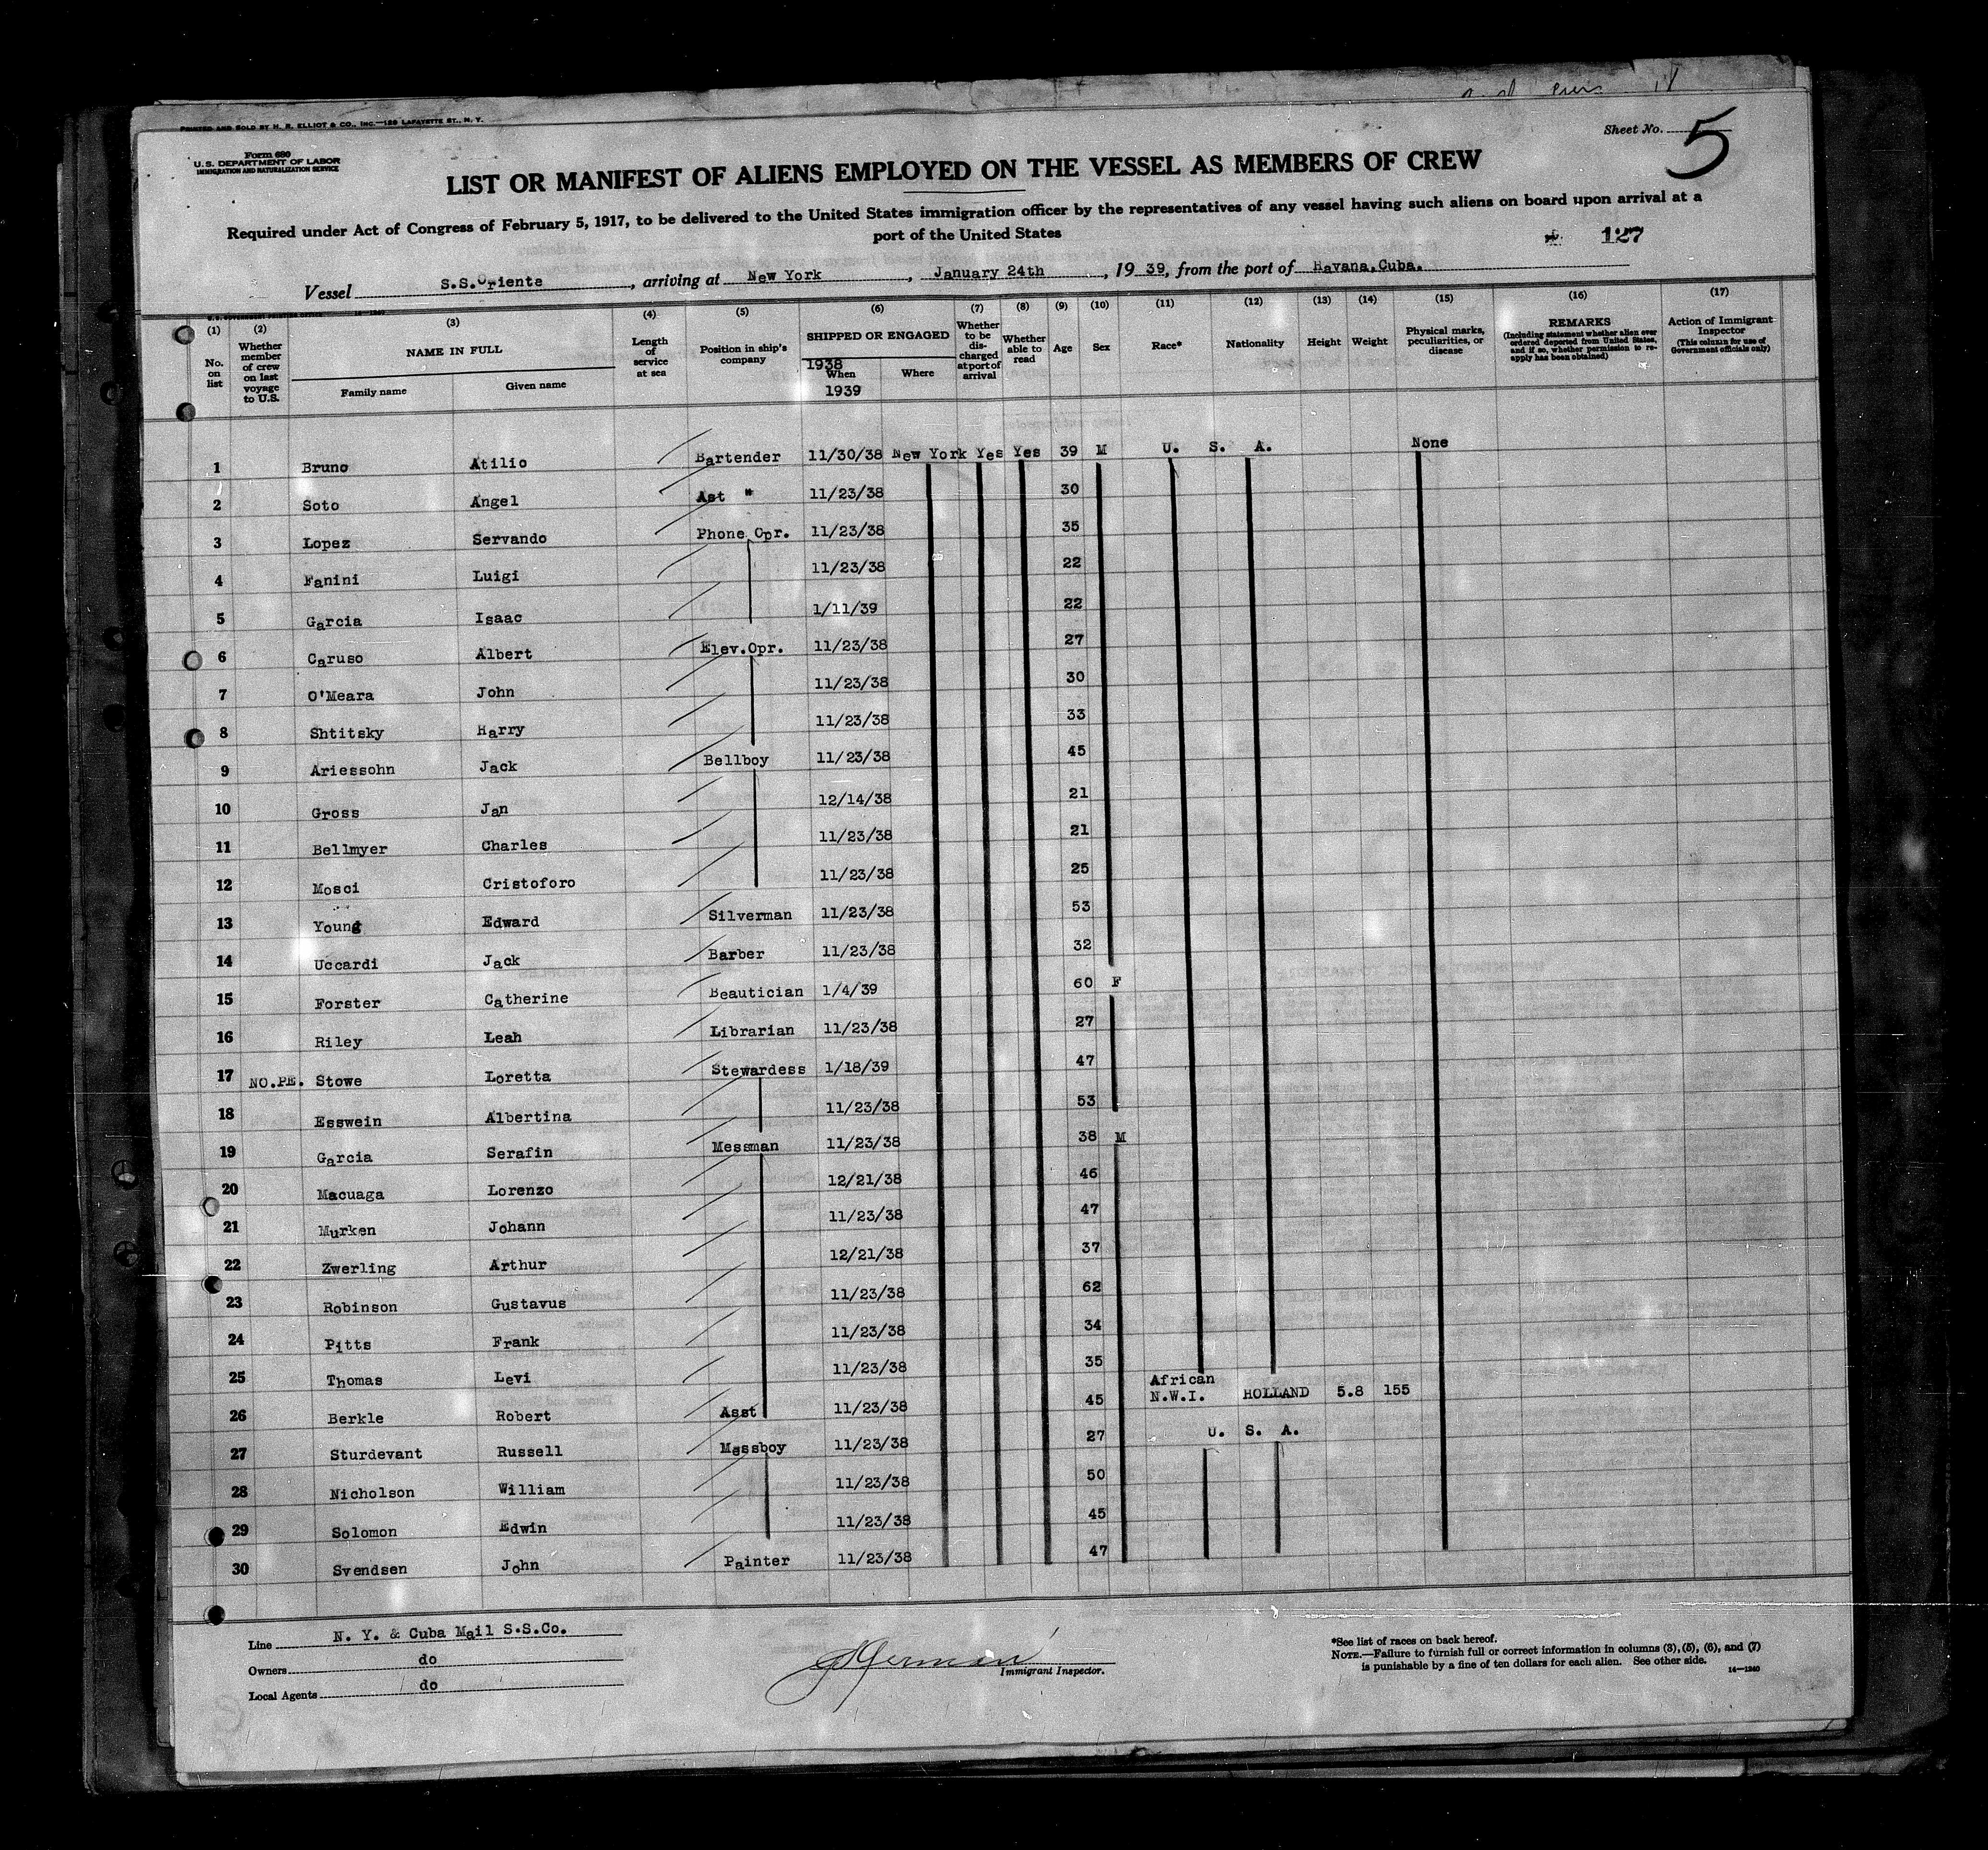 PRINTED AND SOLD BY H. R. ELLIOT & CO., INC.—129 LAFAYETTE ST., N. Y.
Sheet No. 5
Form 680
U.S. DEPARTMENT OF LABOR
IMMIGRATION AND NATURALIZATION SERVICE
LIST OR MANIFEST OF ALIENS EMPLOYED ON THE VESSEL AS MEMBERS OF CREW
Required under Act of Congress of February 5, 1917, to be delivered to the United States immigration officer by the representatives of any vessel having such aliens on board upon arrival at a
port of the United States
127
Vessel S.S.Oriente, arriving at New York, January 24th, 1939, from the port of Havana,Cuba.
(1) (2) (3) (4) (5) (6) (7) (8) (9) (10) (11) (12) (13) (14) (15) (16) (17)
No. on list
Whether member of crew on last voyage to U.S.
NAME IN FULL
Family name
Given name
Length of service at sea
Position in ship's company
SHIPPED OR ENGAGED
1938
When
1939
Where
Whether to be discharged at port of arrival
Whether able to read
Age
Sex
Race*
Nationality
Height
Weight
Physical marks, peculiarities, or disease
REMARKS
(Including statement whether alien ever ordered deported from United States, and if so, whether permission to reapply has been obtained)
Action of Immigrant Inspector
(This column for use of Government officials only)
1 Bruno Atilio Bartender 11/30/38 New York Yes Yes 39 M U. S. A. None
2 Soto Angel Ast " 11/23/38 30
3 Lopez Servando Phone Opr. 11/23/38 35
4 Fanini Luigi 11/23/38 22
5 Garcia Isaac 1/11/39 22
6 Caruso Albert Elev.Opr. 11/23/38 27
7 O'Meara John 11/23/38 30
8 Shtitsky Harry 11/23/38 33
9 Ariessohn Jack Bellboy 11/23/38 45
10 Gross Jan 12/14/38 21
11 Bellmyer Charles 11/23/38 21
12 Mosci Cristoforo 11/23/38 25
13 Young Edward Silverman 11/23/38 53
14 Uccardi Jack Barber 11/23/38 32
15 Forster Catherine Beautician 1/4/39 60 F
16 Riley Leah Librarian 11/23/38 27
17 NO.PE. Stowe Loretta Stewardess 1/18/39 47
18 Esswein Albertina 11/23/38 53
19 Garcia Serafin Messman 11/23/38 38 M
20 Macuaga Lorenzo 12/21/38 46
21 Murken Johann 11/23/38 47
22 Zwerling Arthur 12/21/38 37
23 Robinson Gustavus 11/23/38 62
24 Pitts Frank 11/23/38 34
25 Thomas Levi 11/23/38 35
26 Berkle Robert Asst 11/23/38 45 African N.W.I. HOLLAND 5.8 155
27 Sturdevant Russell Messboy 11/23/38 27 U. S. A.
28 Nicholson William 11/23/38 50
29 Solomon Edwin 11/23/38 45
30 Svendsen John Painter 11/23/38 47
Line N. Y. & Cuba Mail S.S.Co.
Owners do
Local Agents do
Immigrant Inspector.
*See list of races on back hereof.
NOTE.—Failure to furnish full or correct information in columns (3), (5), (6), and (7)
is punishable by a fine of ten dollars for each alien. See other side.
14—1240